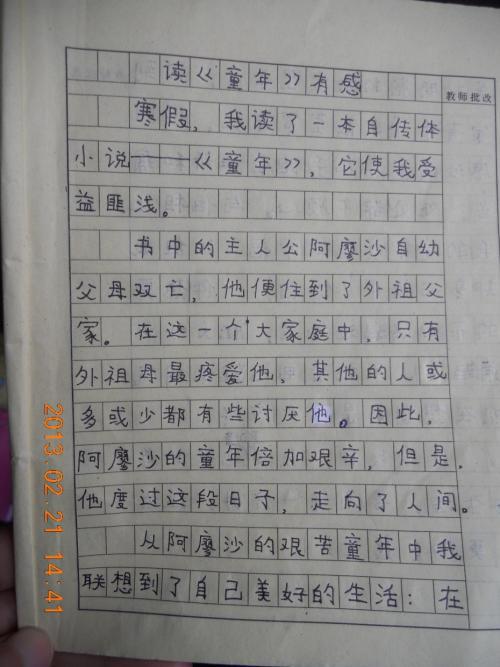 读《童年》有感
教师批改
寒假，我读了一本自传体
小说——《童年》，它使我受
益匪浅。
书中的主人公阿廖沙自幼
父母双亡，他便住到了外祖父
家。在这一个大家庭中，只有
外祖母最疼爱他，其他的人或
多或少都有些讨厌他。因此，
阿廖沙的童年倍加艰辛，但是，
他度过这段日子，走向了人间。
从阿廖沙的艰苦童年中我
联想到了自己美好的生活：在
2013.02.21 14:41